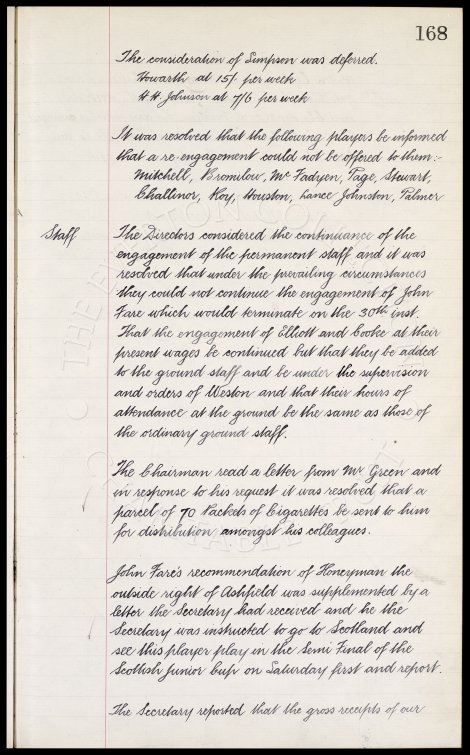 168
The consideration of Simpson was deferred.
Howarth at 15/. per week
H. H. Johnson at 7/6 per week
It was resolved that the following players be informed
that a re-engagement could not be offered to them:-
Mitchell, Bromilow, McFadyen, Page, Stewart,
Challinor, Roy, Houston, Lance Johnston, Palmer
Staff
The Directors considered the continuance of the
engagement of the permanent staff and it was
resolved that under the prevailing circumstances
they could not continue the engagement of John
Fare which would terminate on the 30th inst.
That the engagement of Elliott and Cooke at their
present wages be continued but that they be added
to the ground staff and be under the supervision
and orders of Weston and that their hours of
attendance at the ground be the same as those of
the ordinary ground staff.
The Chairman read a letter from Mr Green and
in response to his request it was resolved that a
parcel of 70 Packets of Cigarettes be sent to him
for distribution amongst his colleagues.
John Fare's recommendation of Honeyman the
outside right of Ashfield was supplemented by a
letter the Secretary had received and he the
Secretary was instructed to go to Scotland and
see this player play in the Semi Final of the
Scottish Junior Cup on Saturday first and report.
The Secretary reported that the gross receipts of our